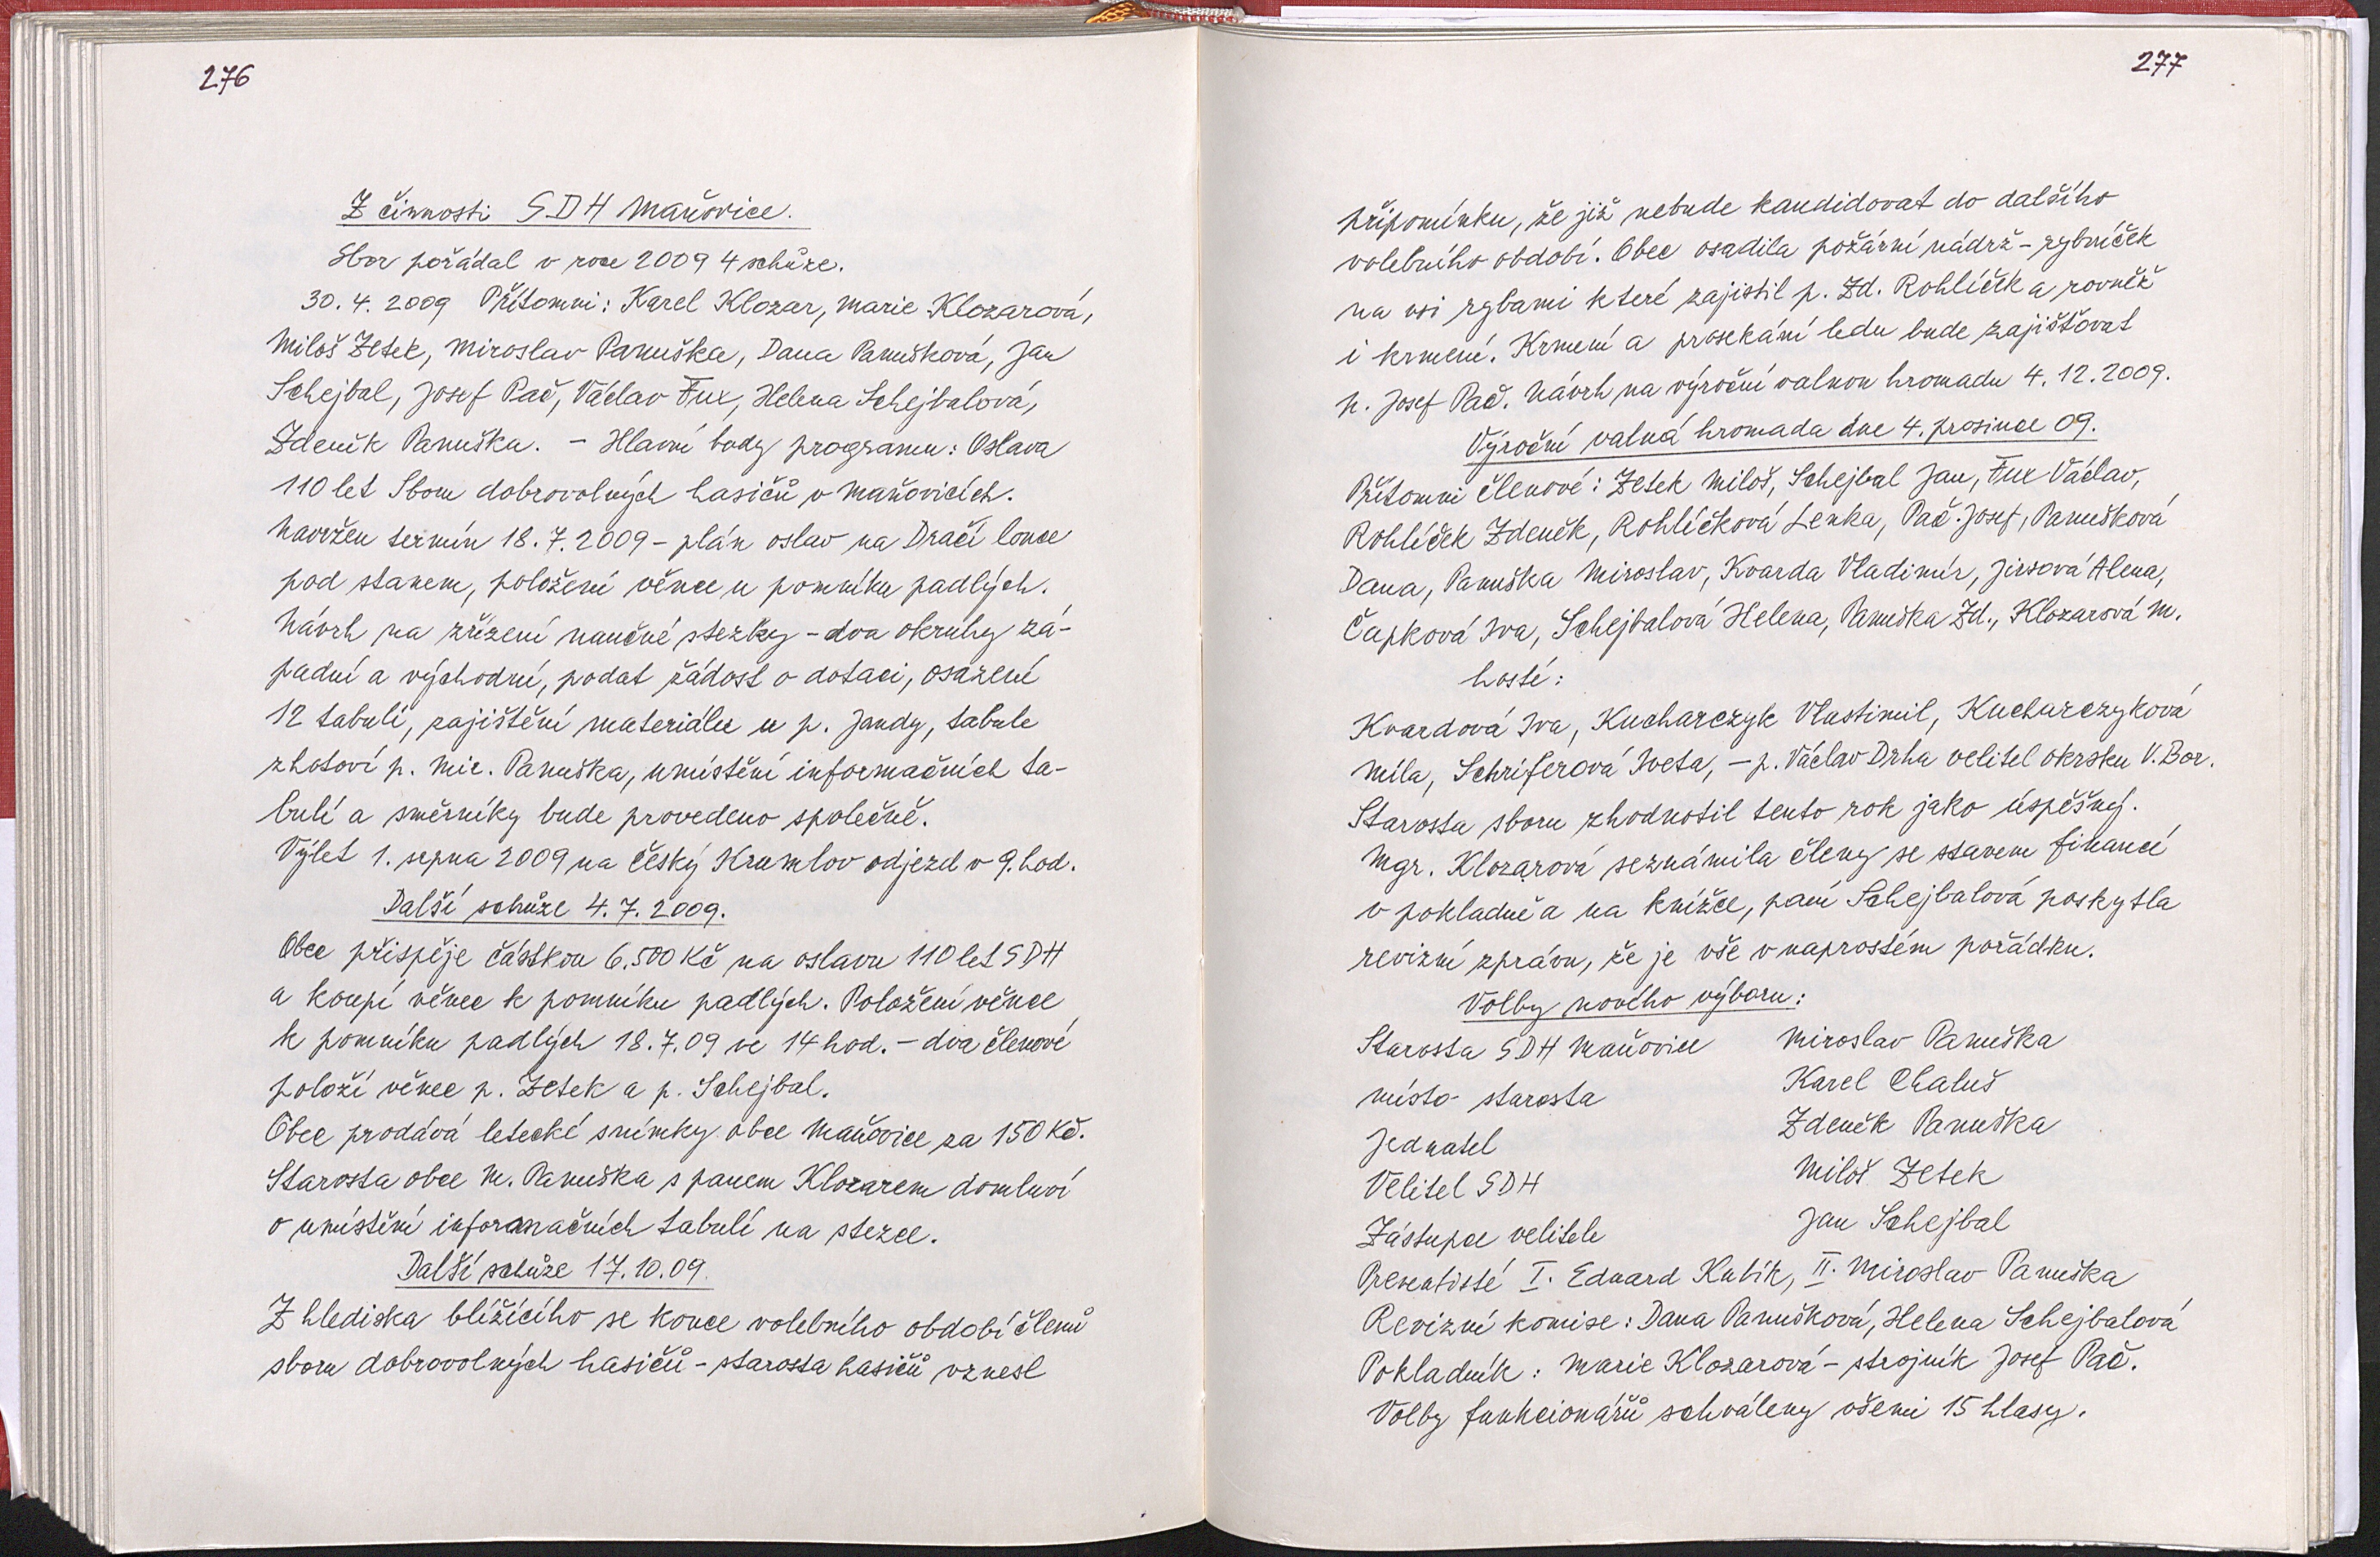 276
Z činnosti SDH Maňovice.
Sbor pořádal v roce 2009 4 schůze.
30. 4. 2009 Přítomni: Karel Klozar, Marie Klozarová,
Miloš Zetek, Miroslav Panuška, Dana Panušková, Jan
Schejbal, Josef Pač, Václav Fux, Helena Schejbalová,
Zdeněk Panuška. - Hlavní body programu: Oslava
110 let Sboru dobrovolných hasičů v Maňovicích.
Navržen termín 18. 7. 2009 - plán oslav na Dračí louce
pod stanem, položení věnce u pomníku padlých.
Návrh na zřízení naučné stezky - dva okruhy zá-
padní a východní, podat žádost o dotaci, osazení
12 tabulí, zajištění materiálu u p. Jandy, tabule
zhotoví p. Mir. Panuška, umístění informačních ta-
bulí a směrníky bude provedeno společně.
Výlet 1. srpna 2009 na Český Krumlov odjezd v 9. hod.
Další schůze 4. 7. 2009.
Obec přispěje částkou 6.500 Kč na oslavu 110 let SDH
a koupí věnec k pomníku padlých. Položení věnce
k pomníku padlých 18. 7. 09 ve 14 hod. - dva členové
položí věnec p. Zetek a p. Schejbal.
Obec prodává letecké snímky obce Maňovice za 150 Kč.
Starosta obce M. Panuška s panem Klozarem domluví
o umístění informačních tabulí na stezce.
Další schůze 17. 10. 09.
Z hlediska blížícího se konce volebního období členů
sboru dobrovolných hasičů - starosta hasičů vznesl
277
připomínku, že již nebude kandidovat do dalšího
volebního období. Obec osadila požární nádrž - rybníček
na vsi rybami které zajistil p. Zd. Rohlíček a rovněž
i krmení. Krmení a prosekání ledu bude zajišťovat
p. Josef Pač. Návrh na výroční valnou hromadu 4. 12. 2009.
Výroční valná hromada dne 4. prosince 09.
Přítomni členové: Zetek Miloš, Schejbal Jan, Fux Václav,
Rohlíček Zdeněk, Rohlíčková Lenka, Pač Josef, Panušková
Dana, Panuška Miroslav, Kvarda Vladimír, Jirsová Alena,
Čapková Iva, Schejbalová Helena, Panuška Zd., Klozarová M.
hosté:
Kvardová Iva, Kucharczyk Vlastimil, Kucharczyková
Míla, Schriferová Iveta, - p. Václav Drha velitel okrsku V. Bor.
Starosta sboru zhodnotil tento rok jako úspěšný.
Mgr. Klozarová seznámila členy se stavem financí
v pokladně a na knížce, paní Schejbalová poskytla
revizní zprávu, že je vše v naprostém pořádku.
Volby nového výboru:
Starosta SDH Maňovice Miroslav Panuška
místo- starosta Karel Chaluš
Jednatel Zdeněk Panuška
Velitel SDH Miloš Zetek
Zástupce velitele Jan Schejbal
Preventisté I. Eduard Kubík, II. Miroslav Panuška
Revizní komise: Dana Panušková, Helena Schejbalová
Pokladník: Marie Klozarová - strojník Josef Pač.
Volby funkcionářů schváleny všemi 15 hlasy.